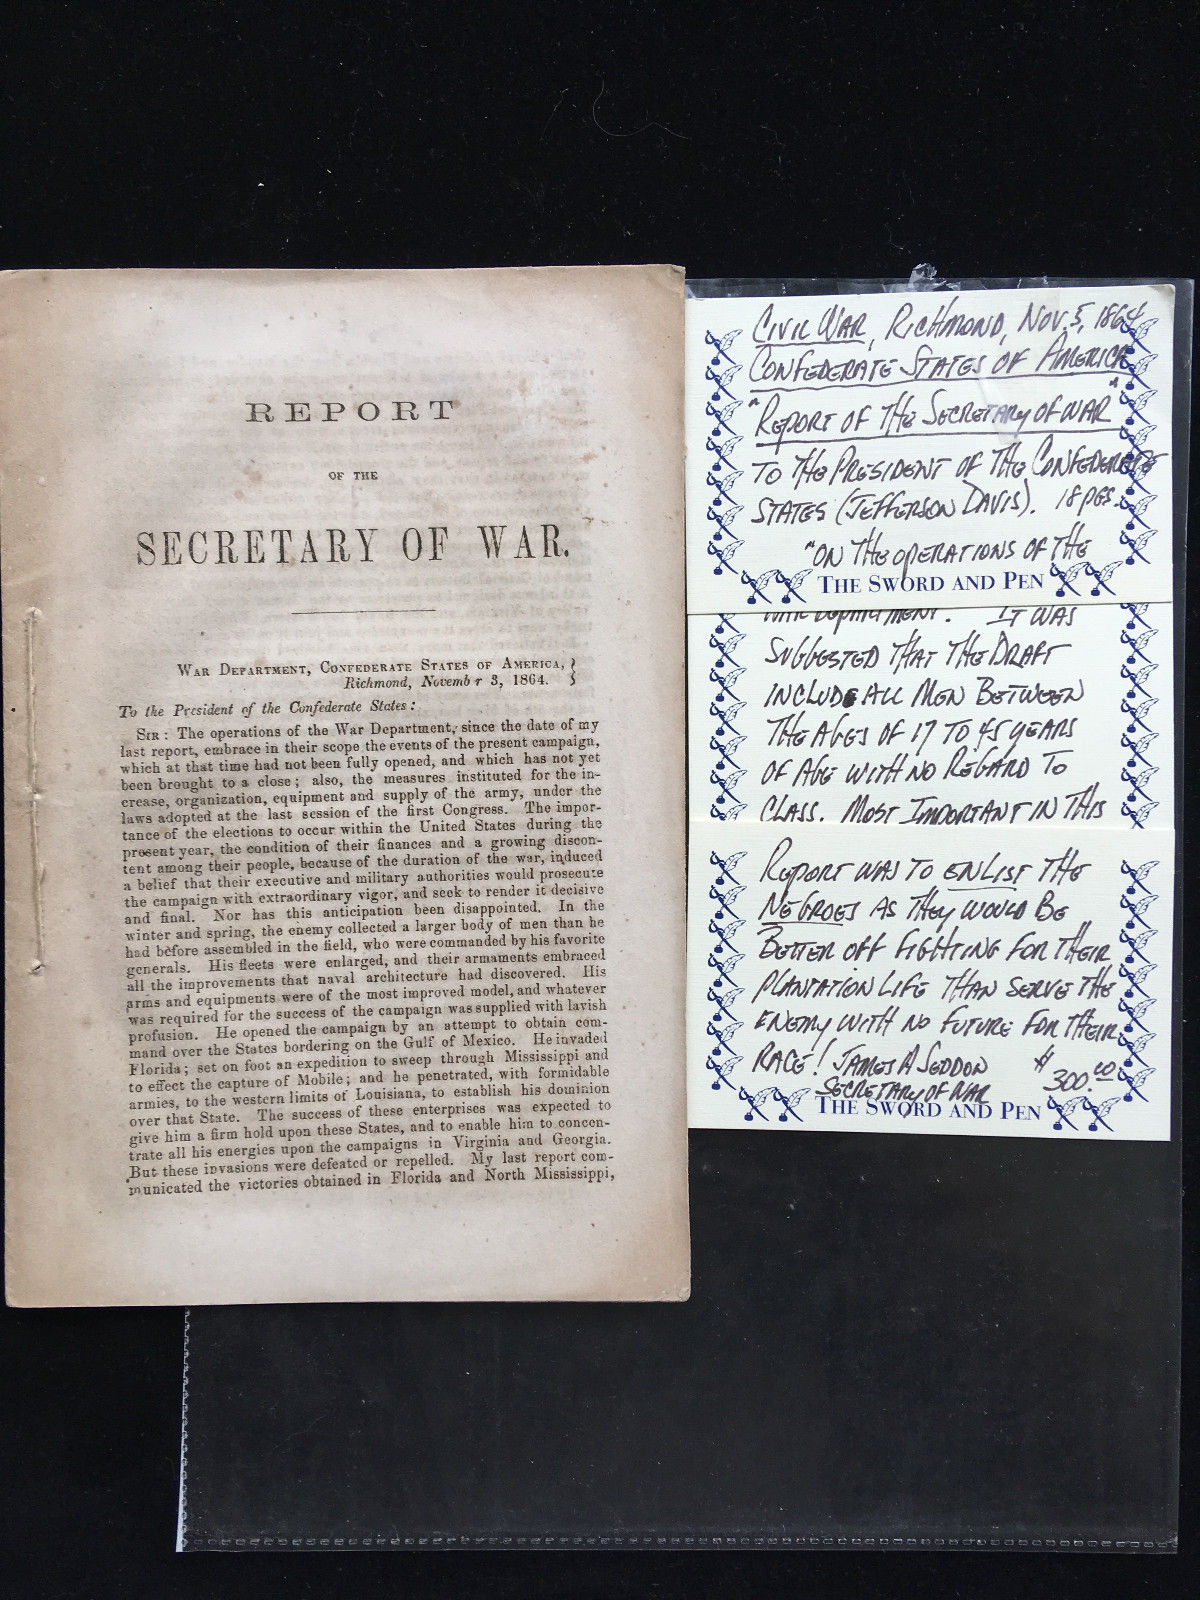 REPORT
OF THE
SECRETARY OF WAR.
WAR DEPARTMENT, CONFEDERATE STATES OF AMERICA,
Richmond, Novemb r 3, 1864.
To the President of the Confederate States :
SIR : The operations of the War Department, since the date of my
last report, embrace in their scope the events of the present campaign,
which at that time had not been fully opened, and which has not yet
been brought to a close ; also, the measures instituted for the in-
crease, organization, equipment and supply of the army, under the
laws adopted at the last session of the first Congress. The impor-
tance of the elections to occur within the United States during the
present year, the condition of their finances and a growing discon-
tent among their people, because of the duration of the war, induced
a belief that their executive and military authorities would prosecute
the campaign with extraordinary vigor, and seek to render it decisive
and final. Nor has this anticipation been disappointed. In the
winter and spring, the enemy collected a larger body of men than he
had before assembled in the field, who were commanded by his favorite
generals. His fleets were enlarged, and their armaments embraced
all the improvements that naval architecture had discovered. His
arms and equipments were of the most improved model, and whatever
was required for the success of the campaign was supplied with lavish
profusion. He opened the campaign by an attempt to obtain com-
mand over the States bordering on the Gulf of Mexico. He invaded
Florida ; set on foot an expedition to sweep through Mississippi and
to effect the capture of Mobile ; and he penetrated, with formidable
armies, to the western limits of Louisiana, to establish his dominion
over that State. The success of these enterprises was expected to
give him a firm hold upon these States, and to enable him to concen-
trate all his energies upon the campaigns in Virginia and Georgia.
But these invasions were defeated or repelled. My last report com-
municated the victories obtained in Florida and North Mississippi,
CIVIL WAR, RICHMOND, NOV. 5, 1864
CONFEDERATE STATES OF AMERICA
"REPORT OF THE SECRETARY OF WAR"
TO THE PRESIDENT OF THE CONFEDERATE
STATES (JEFFERSON DAVIS). 18 PGS.
"ON THE OPERATIONS OF THE
THE SWORD AND PEN
WAR DEPARTMENT. IT WAS
SUGGESTED THAT THE DRAFT
INCLUDE ALL MEN BETWEEN
THE AGES OF 17 TO 45 YEARS
OF AGE WITH NO REGARD TO
CLASS. MOST IMPORTANT IN THIS
REPORT WAS TO ENLIST THE
NEGROES AS THEY WOULD BE
BETTER OFF FIGHTING FOR THEIR
PLANTATION LIFE THAN SERVE THE
ENEMY WITH NO FUTURE FOR THEIR
RACE! JAMES A SEDDON $300.00
SECRETARY OF WAR
THE SWORD AND PEN